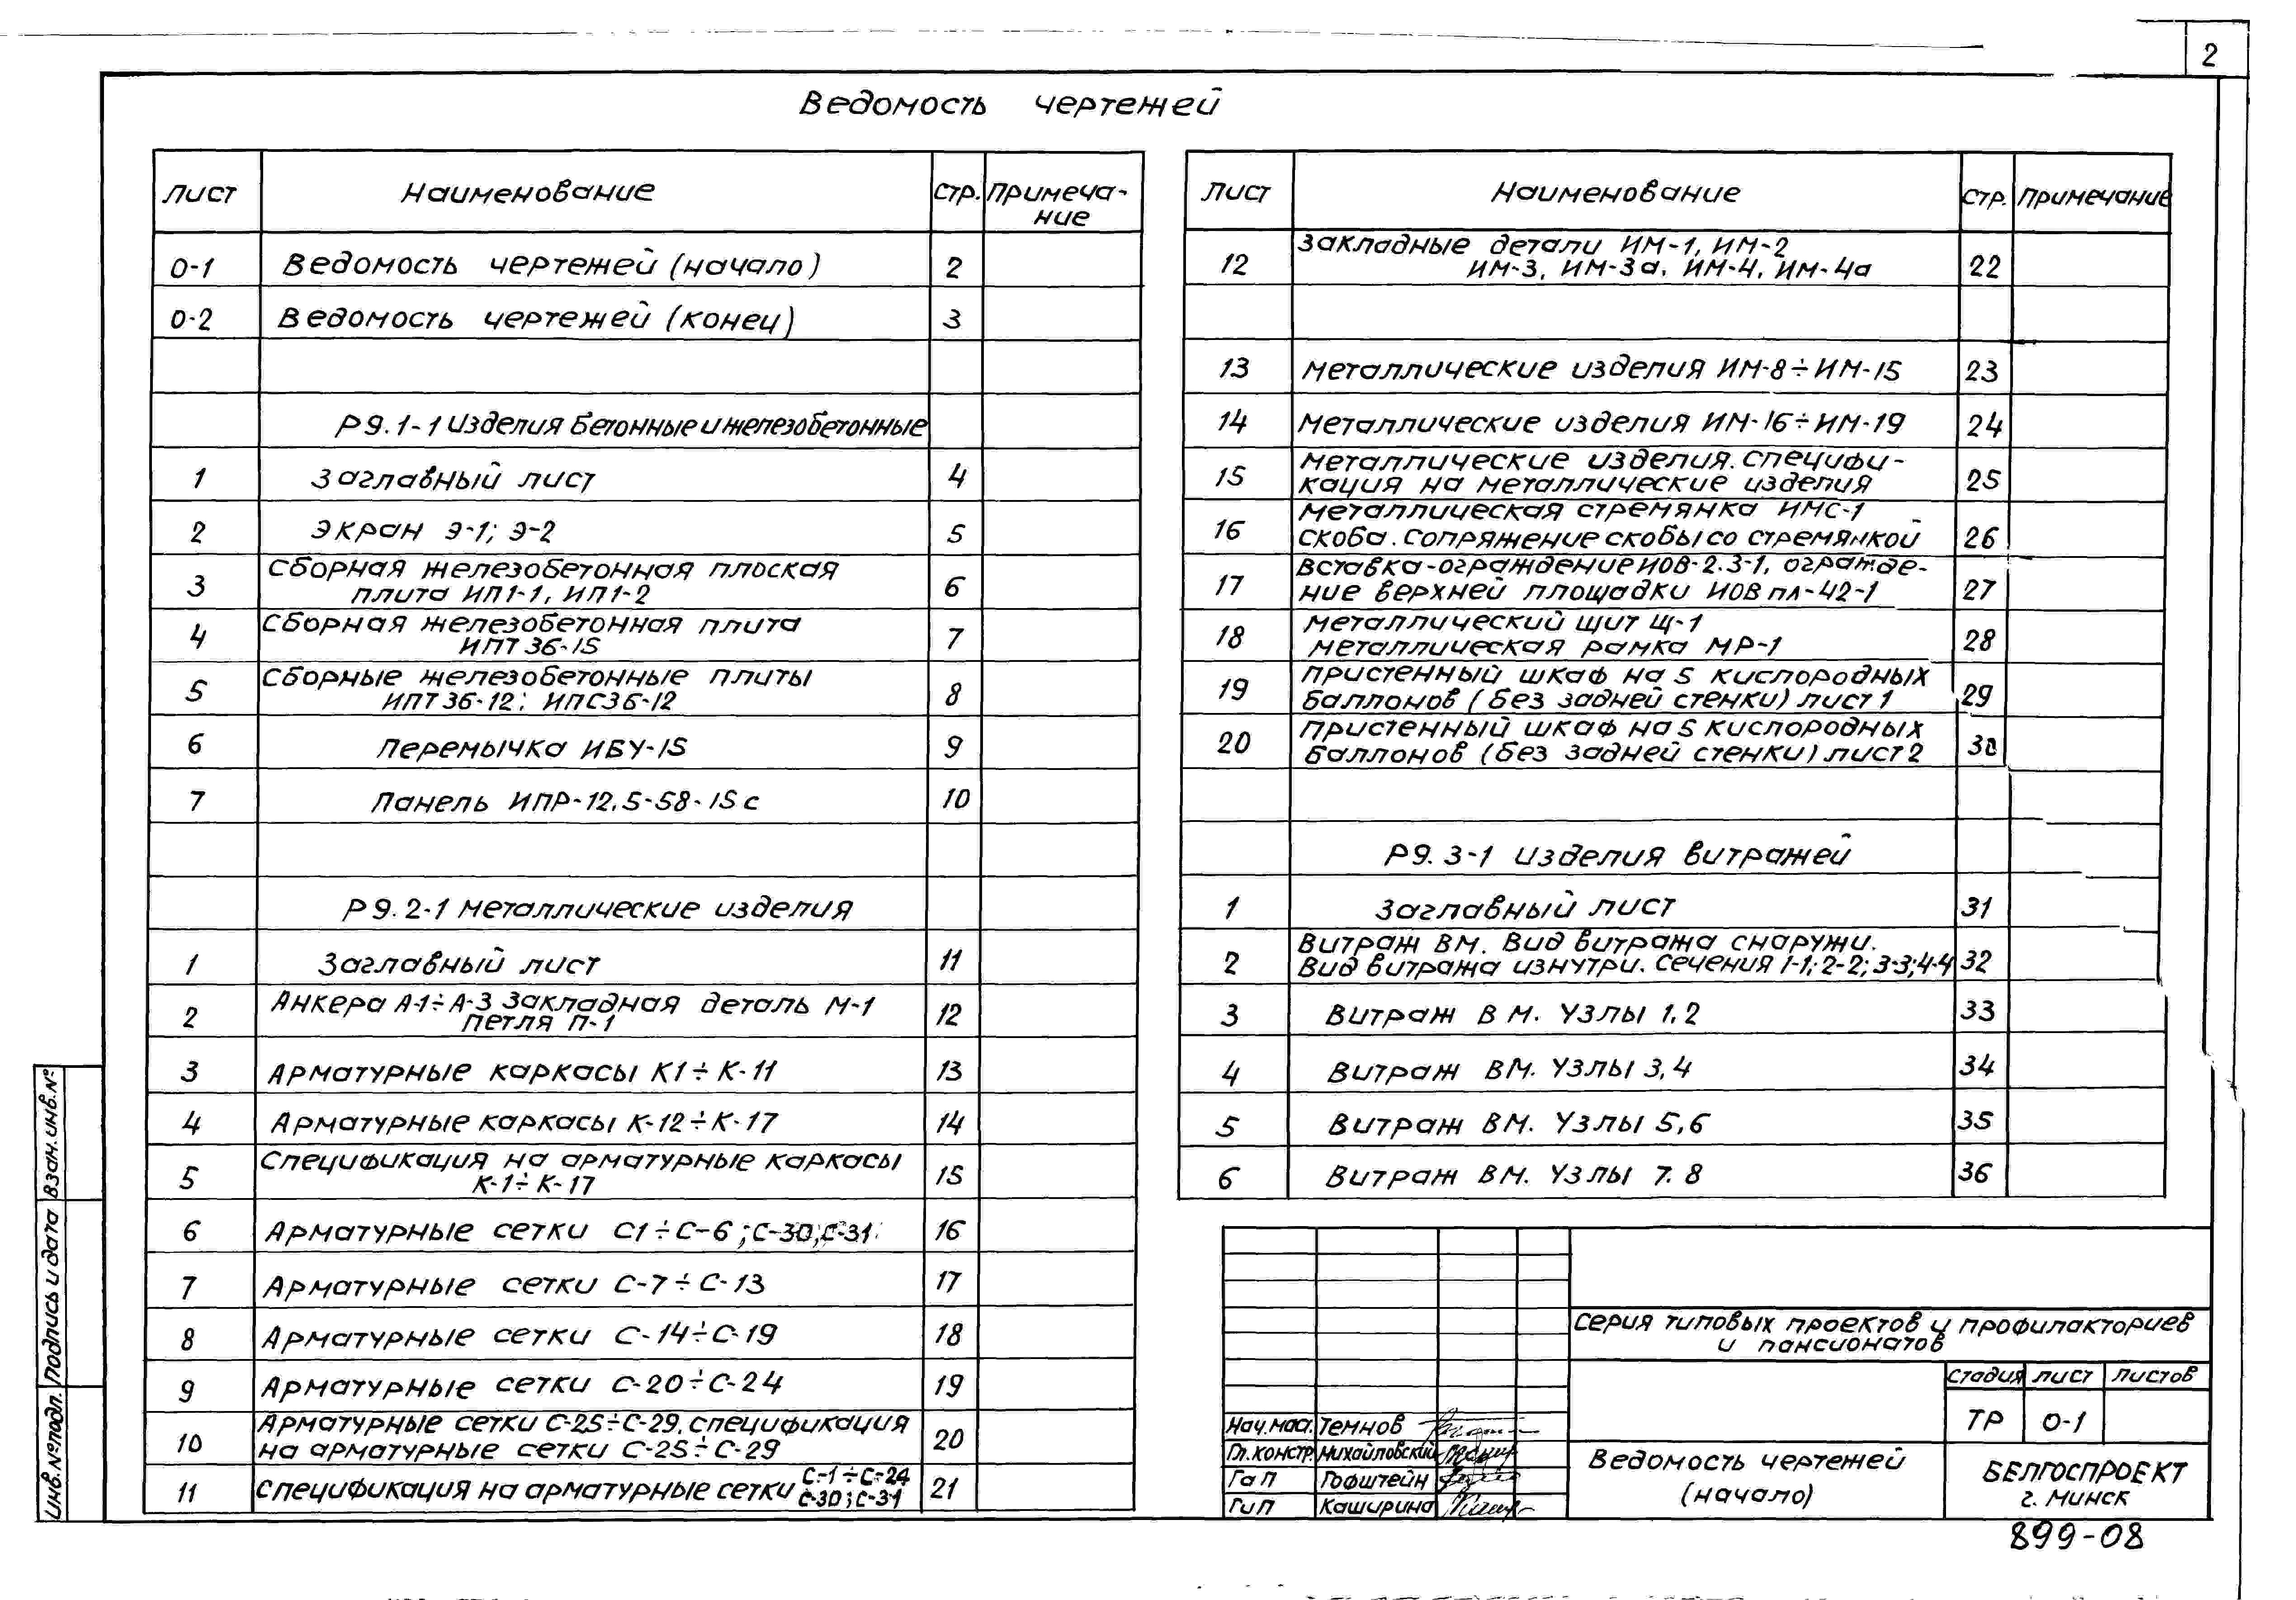 2
Ведомость чертежей
Лист Наименование Стр. Примеча-
ние
0-1 Ведомость чертежей (начало) 2
0-2 Ведомость чертежей (конец) 3
Р9.1-1 Изделия бетонные и железобетонные
1 Заглавный лист 4
2 Экран Э-1; Э-2 5
3 Сборная железобетонная плоская
плита ИП1-1, ИП1-2 6
4 Сборная железобетонная плита
ИПТ36-15 7
5 Сборные железобетонные плиты
ИПТ36-12; ИПС36-12 8
6 Перемычка ИБУ-15 9
7 Панель ИПР-12.5-58-15с 10
Р9.2-1 Металлические изделия
1 Заглавный лист 11
2 Анкера А-1÷А-3 Закладная деталь М-1
петля П-1 12
3 Арматурные каркасы К1÷К-11 13
4 Арматурные каркасы К-12÷К-17 14
5 Спецификация на арматурные каркасы
К-1÷К-17 15
6 Арматурные сетки С1÷С-6; С-30, С-31 16
7 Арматурные сетки С-7÷С-13 17
8 Арматурные сетки С-14÷С-19 18
9 Арматурные сетки С-20÷С-24 19
10 Арматурные сетки С-25÷С-29. Спецификация
на арматурные сетки С-25÷С-29 20
11 Спецификация на арматурные сетки С-1÷С-24
С-30; С-31 21
Лист Наименование Стр. Примечание
12 Закладные детали ИМ-1, ИМ-2
ИМ-3, ИМ-3а, ИМ-4, ИМ-4а 22
13 Металлические изделия ИМ-8÷ИМ-15 23
14 Металлические изделия ИМ-16÷ИМ-19 24
15 Металлические изделия. Специфи-
кация на металлические изделия 25
16 Металлическая стремянка ИМС-1
скоба. Сопряжение скобы со стремянкой 26
17 Вставка-ограждение ИОВ-2.3-1, огражде-
ние верхней площадки ИОВпл-42-1 27
18 Металлический щит Щ-1
Металлическая рамка МР-1 28
19 Пристенный шкаф на 5 кислородных
баллонов (без задней стенки) лист 1 29
20 Пристенный шкаф на 5 кислородных
баллонов (без задней стенки) лист 2 30
Р9.3-1 Изделия витражей
1 Заглавный лист 31
2 Витраж ВМ. Вид витража снаружи.
Вид витража изнутри. Сечения 1-1; 2-2; 3-3; 4-4 32
3 Витраж ВМ. Узлы 1,2 33
4 Витраж ВМ. Узлы 3,4 34
5 Витраж ВМ. Узлы 5,6 35
6 Витраж ВМ. Узлы 7.8 36
Серия типовых проектов у профилакториев
и пансионатов
Стадия Лист Листов
ТР 0-1
Нач.мас. Темнов
Гл.констр. Михайловский
ГаП Гофштейн
ГиП Каширина
Ведомость чертежей
(начало)
БЕЛГОСПРОЕКТ
г. Минск
899-08
Взам.инв.№
Подпись и дата
Инв.№подл.